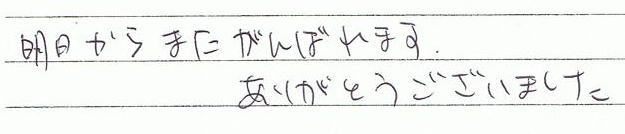 明日からまたがんばれます.
ありがとうございました